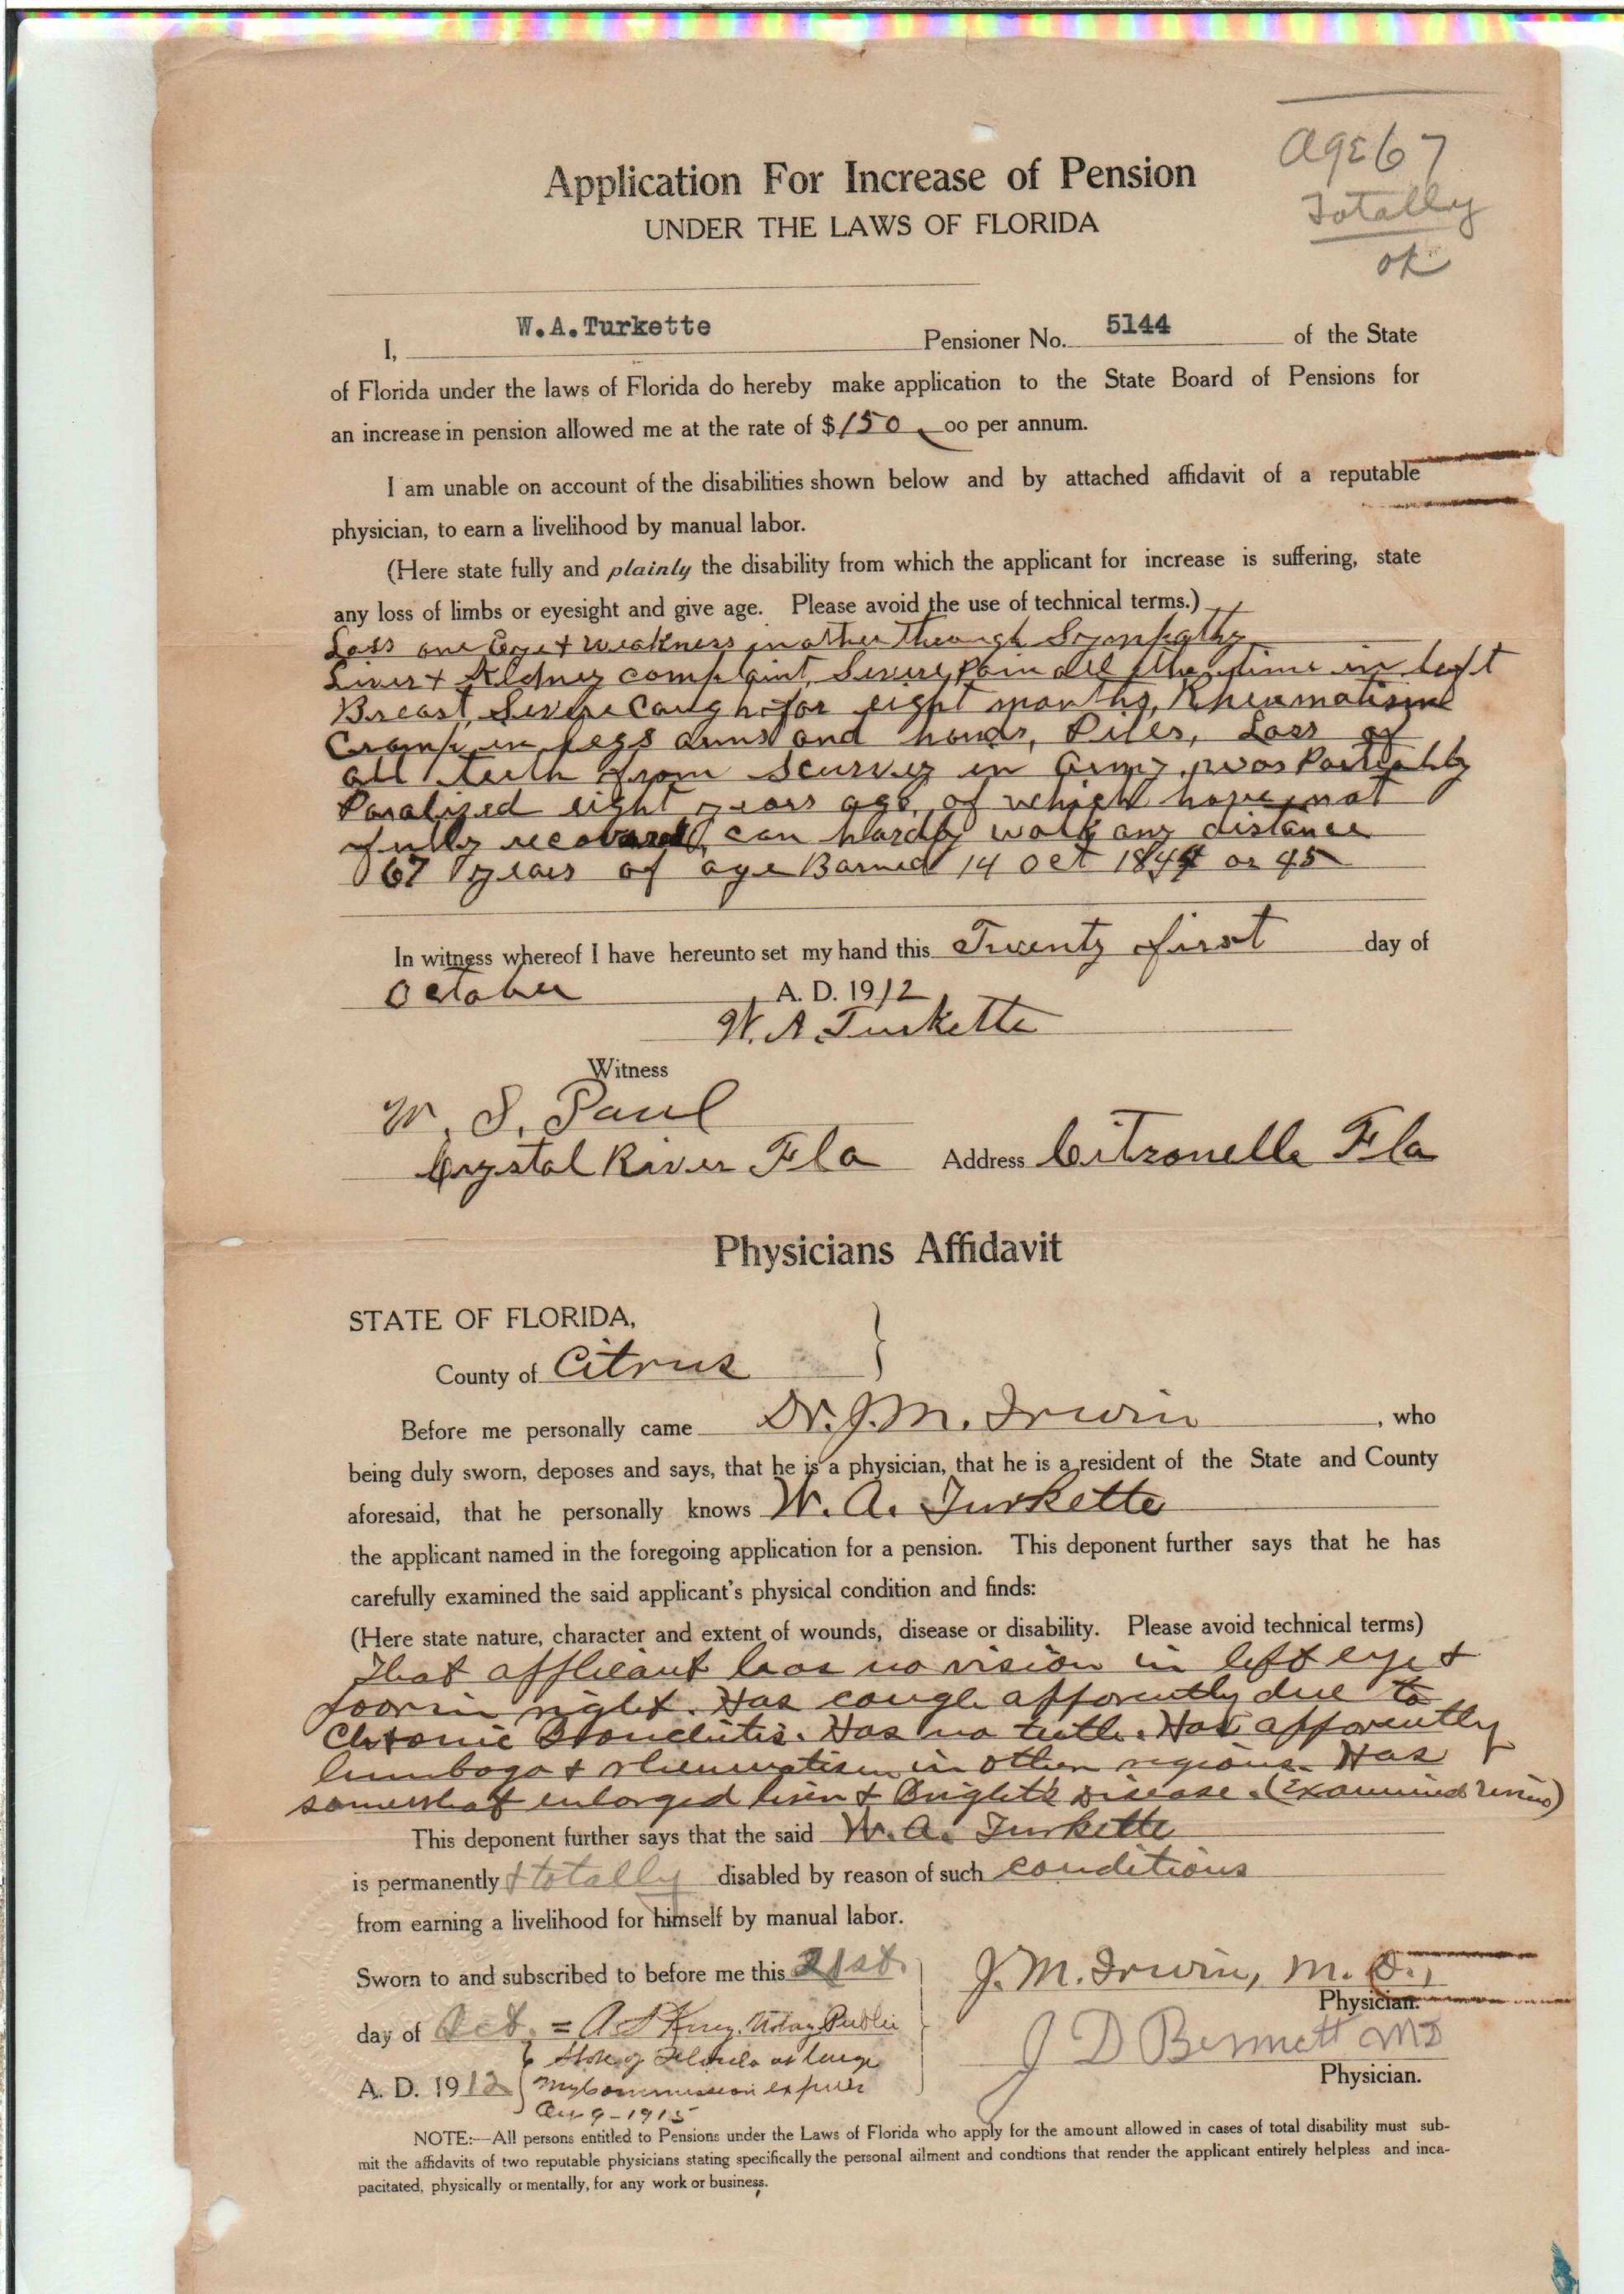 Age 67
Totally
ok
Application For Increase of Pension
UNDER THE LAWS OF FLORIDA
I, W.A.Turkette Pensioner No. 5144 of the State
of Florida under the laws of Florida do hereby make application to the State Board of Pensions for
an increase in pension allowed me at the rate of $150.00 per annum.
I am unable on account of the disabilities shown below and by attached affidavit of a reputable
physician, to earn a livelihood by manual labor.
(Here state fully and plainly the disability from which the applicant for increase is suffering, state
any loss of limbs or eyesight and give age. Please avoid the use of technical terms.)
Loss one Eye & weakness in other through Sympathy
Liver & Kidney complaint, Severe Pain all the time in Left
Breast, Severe Caugh for eight months, Rheumatism
Cramp in Legs arms and hands, Piles, Loss of
all teeth from Scurvey in Army, was Partially
Paralized eight years ago, of which have not
fully recovered, can hardly walk any distance
67 years of age Borned 14 Oct 1844 or 45
In witness whereof I have hereunto set my hand this Twenty first day of
October A. D. 1912
W. A. Turkette
Witness
W. S. Paul
Crystal River Fla Address Citronelle Fla
Physicians Affidavit
STATE OF FLORIDA,
County of Citrus
Before me personally came Dr. J. M. Irwin, who
being duly sworn, deposes and says, that he is a physician, that he is a resident of the State and County
aforesaid, that he personally knows W. A. Turkette
the applicant named in the foregoing application for a pension. This deponent further says that he has
carefully examined the said applicant's physical condition and finds:
(Here state nature, character and extent of wounds, disease or disability. Please avoid technical terms)
That applicant has no vision in left eye &
poor in right. Has cough apparently due to
Chronic Bronchitis. Has no teeth. Has apparently
lumbago & rheumatism in other regions. Has
somewhat enlarged liver & Bright's Disease. (Examined urine)
This deponent further says that the said W. A. Turkette
is permanently & totally disabled by reason of such conditions
from earning a livelihood for himself by manual labor.
Sworn to and subscribed to before me this 21st. J. M. Irwin, M. D.,
Physician.
day of Oct. = Notary Public
State of Florida at large J D Bennett MD
A. D. 1912 My Commission expires Physician.
9 - 1915
NOTE:—All persons entitled to Pensions under the Laws of Florida who apply for the amount allowed in cases of total disability must sub-
mit the affidavits of two reputable physicians stating specifically the personal ailment and condtions that render the applicant entirely helpless and inca-
pacitated, physically or mentally, for any work or business.